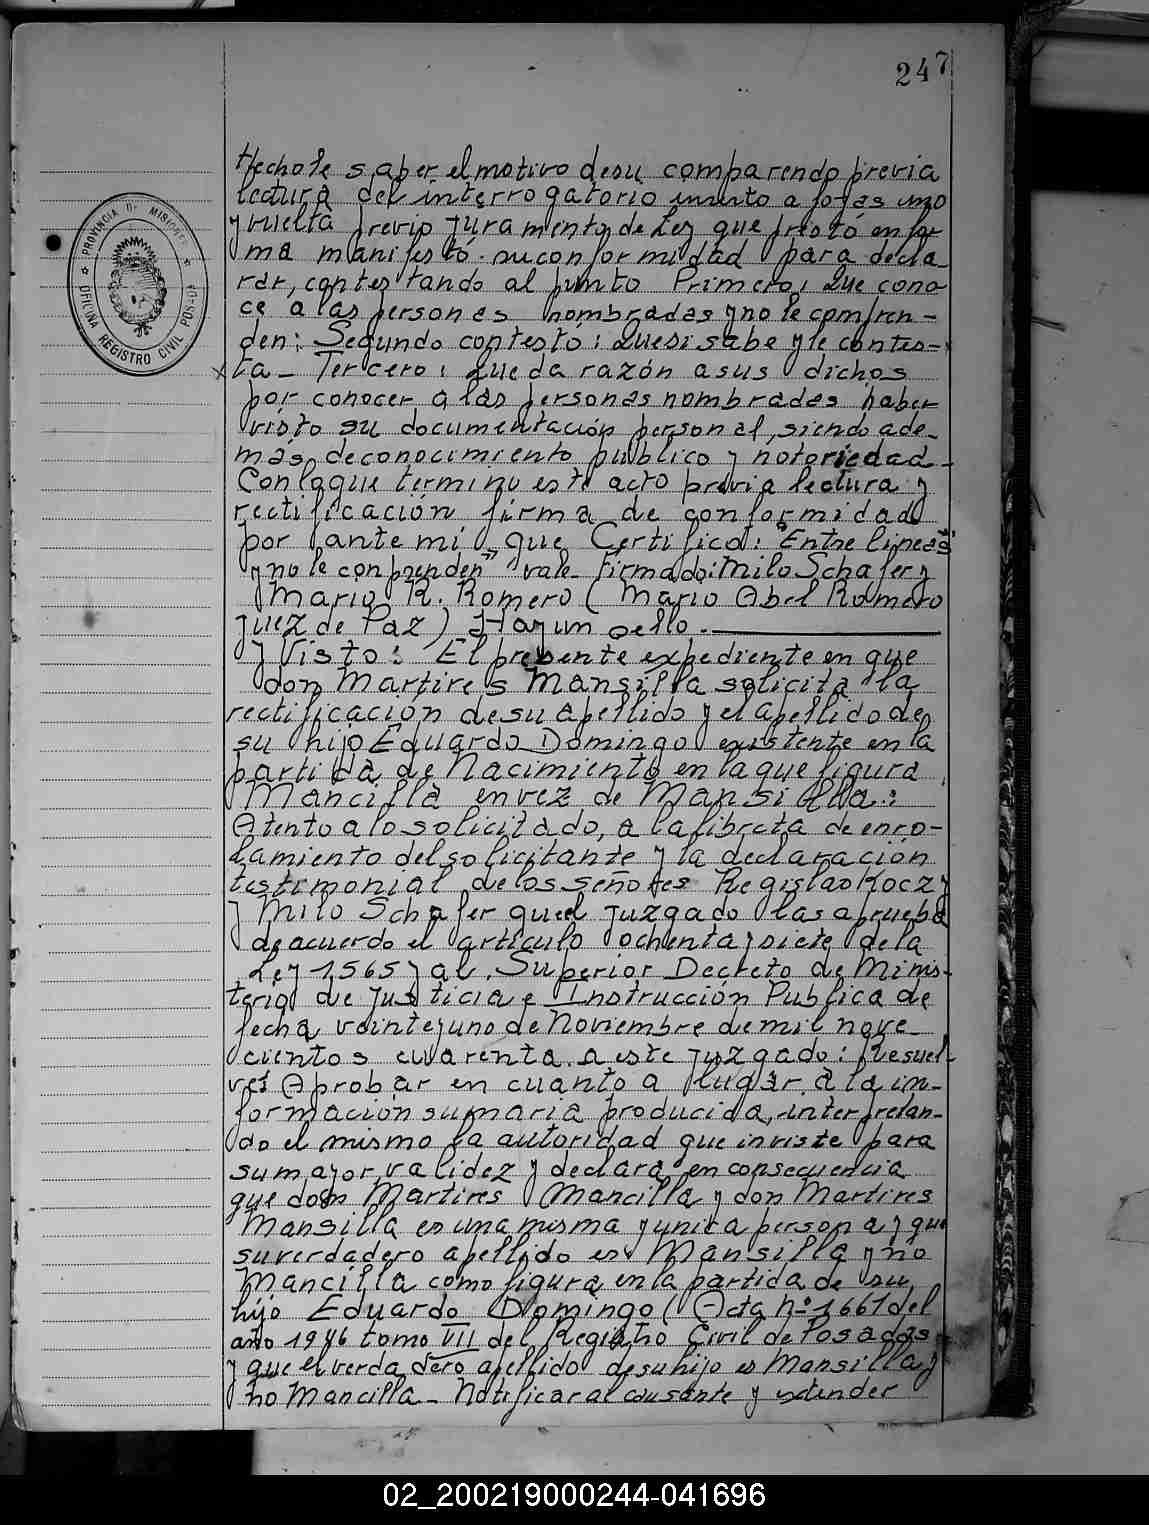 247
Hechole saber el motivo desu comparendo previa
lectura del interrogatorio inserto a fojas uno
y vuelta previo Juramento de Ley que prestó en for
ma manifestó su conformidad para decla_
rar, contestando al punto Primero: Que cono
ce a las personas nombradas y no le compren-
den: Segundo contestó: Que si sabe y le contes-
ta_ Tercero: Que da razón a sus dichos
por conocer a las personas nombradas haber
visto su documentación personal, siendo ade_
más de conocimiento publico y notoriedad_
Con la que termino este acto previa lectura y
rectificación firma de conformidad
por ante mi que Certifico: "Entre lineas"
y no le conprenden" vale_ Firmado: Milo Schafer y
Mario R. Romero (Mario Abel Romero
Juez de Paz) Hay un sello._
y Visto: El presente expediente en que
don Martires Mansilla solicita la
rectificación de su apellido y el apellido de
su hijo Eduardo Domingo existente en la
partida de Nacimiento en la que figura
Mancilla en vez de Mansilla:
Atento a lo solicitado, a la libreta de enro-
lamiento del solicitante y la declaración
testimonial de los señores Regislao Koczy
y Milo Schafer que el Juzgado las aprueba
de acuerdo el artículo ochenta y siete de la
Ley 1565 y al Superior Decreto de Minis-
terio de Justicia e Instrucción Publica de
fecha veinte y uno de Noviembre de mil nove_
cientos cuarenta a este Juzgado: Resuel-
ve: Aprobar en cuanto a lugar a la in-
formación sumaria producida, interpretan-
do el mismo la autoridad que inviste para
su mayor validez y declara en consecuencia
que don Martires Mancilla y don Martires
Mansilla es una misma y unica persona y que
su verdadero apellido es Mansilla y no
Mancilla como figura en la partida de su
hijo Eduardo Domingo (Acta Nº 1661 del
año 1946 tomo VII del Registro Civil de Posadas
y que el verdadero apellido de su hijo es Mansilla y
no Mancilla_ Notificar al causante y extender
PROVINCIA DE MISIONES
OFICINA REGISTRO CIVIL POSADAS
02_200219000244-041696